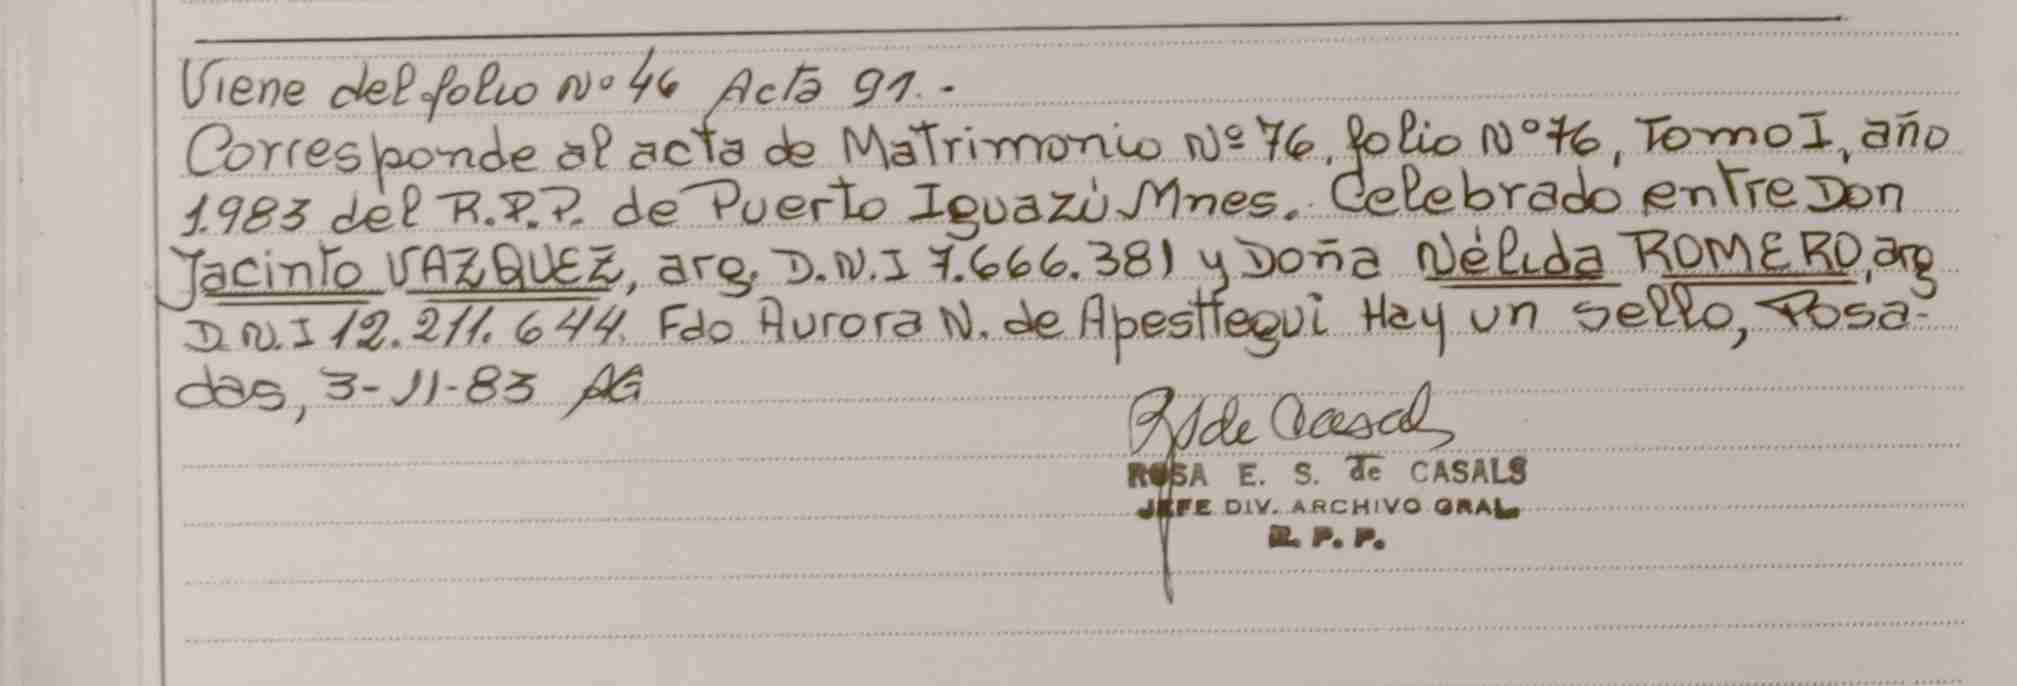 Viene del folio Nº 46 Acta 91.-
Corresponde al acta de Matrimonio Nº 76, folio Nº 76, Tomo I, año
1.983 del R.P.P. de Puerto Iguazú Mnes. Celebrado entre Don
Jacinto VAZQUEZ, arg. D.N.I 7.666.381 y Doña Nélida ROMERO, arg
D.N.I 12.211.644. Fdo Aurora N. de Apesttegui Hay un sello, Posa-
das, 3-11-83 AG
RS de Casals
ROSA E. S. de CASALS
JEFE DIV. ARCHIVO GRAL
R. P. P.